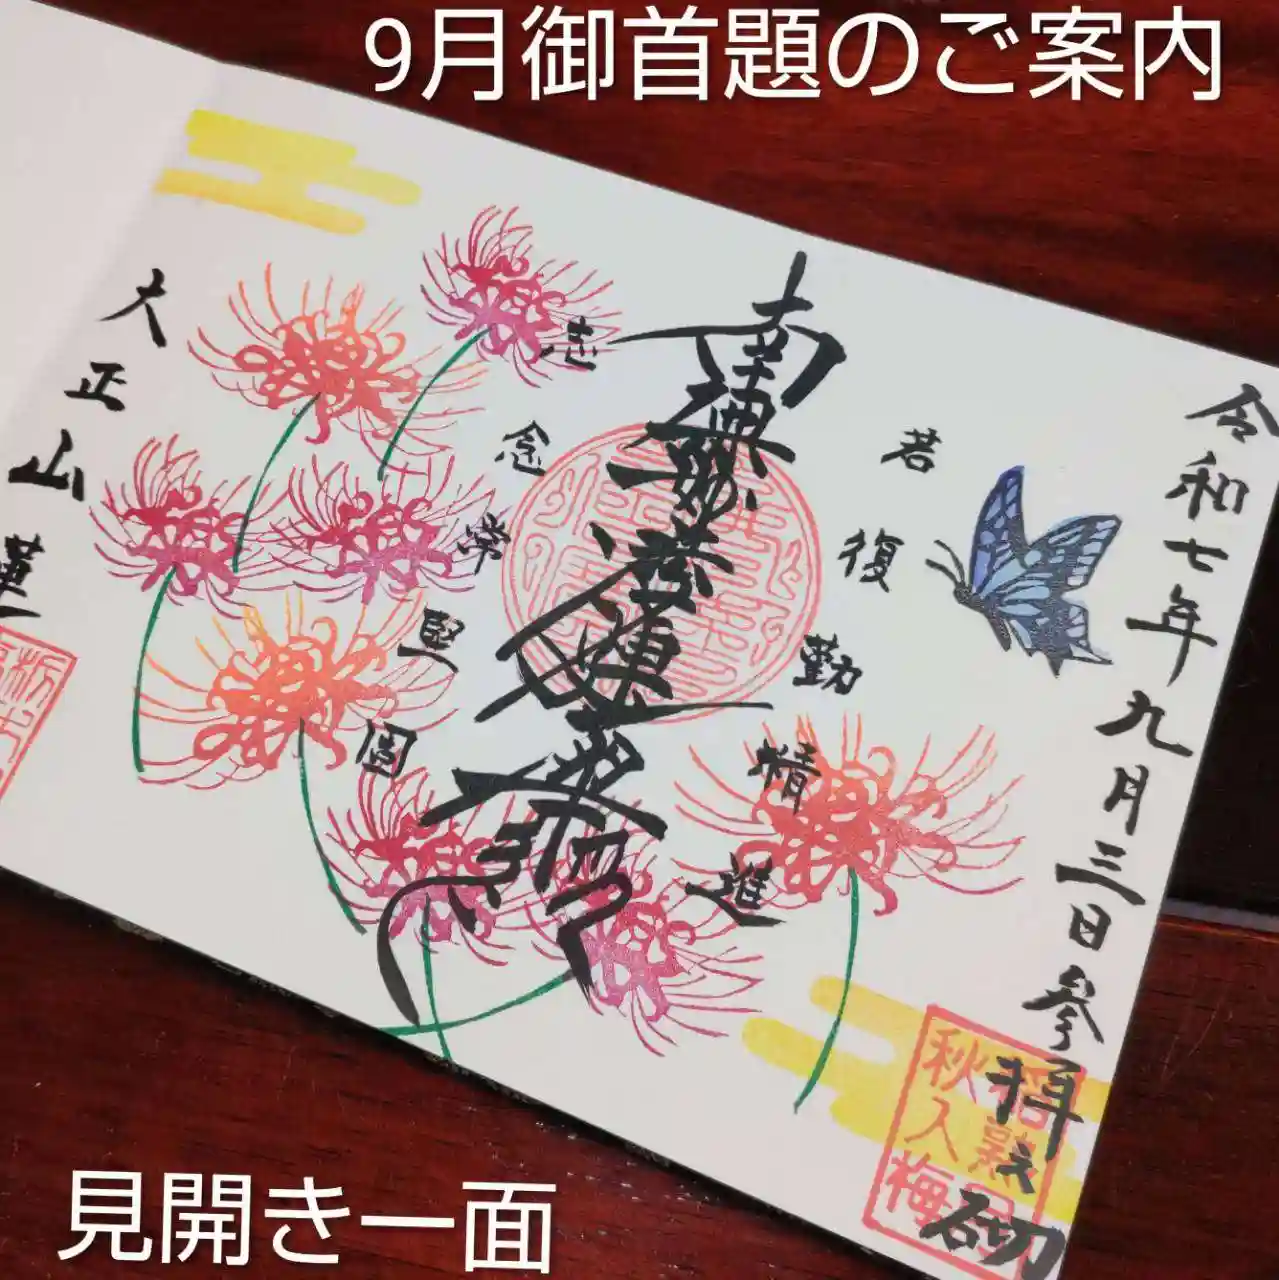 9月御首題のご案内
令和七年九月三日参拝之砌
若復勤精進
南無妙法蓮華経
志念常堅固
大正山
秋入梅
見開き一面